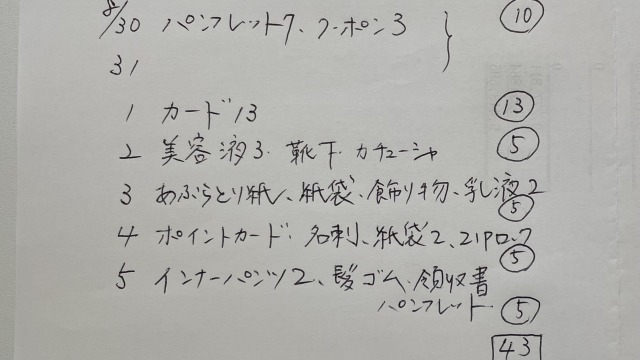 8/30 パンフレット7、クーポン3 ⑩
31
1 カード13 ⑬
2 美容液3. 靴下. カチューシャ ⑤
3 あぶらとり紙、紙袋、飾り物、乳液2 ⑤
4 ポイントカード. 名刺、紙袋2、ZIPロック ⑤
5 インナーパンツ2、髪ゴム、領収書
パンフレット ⑤
43